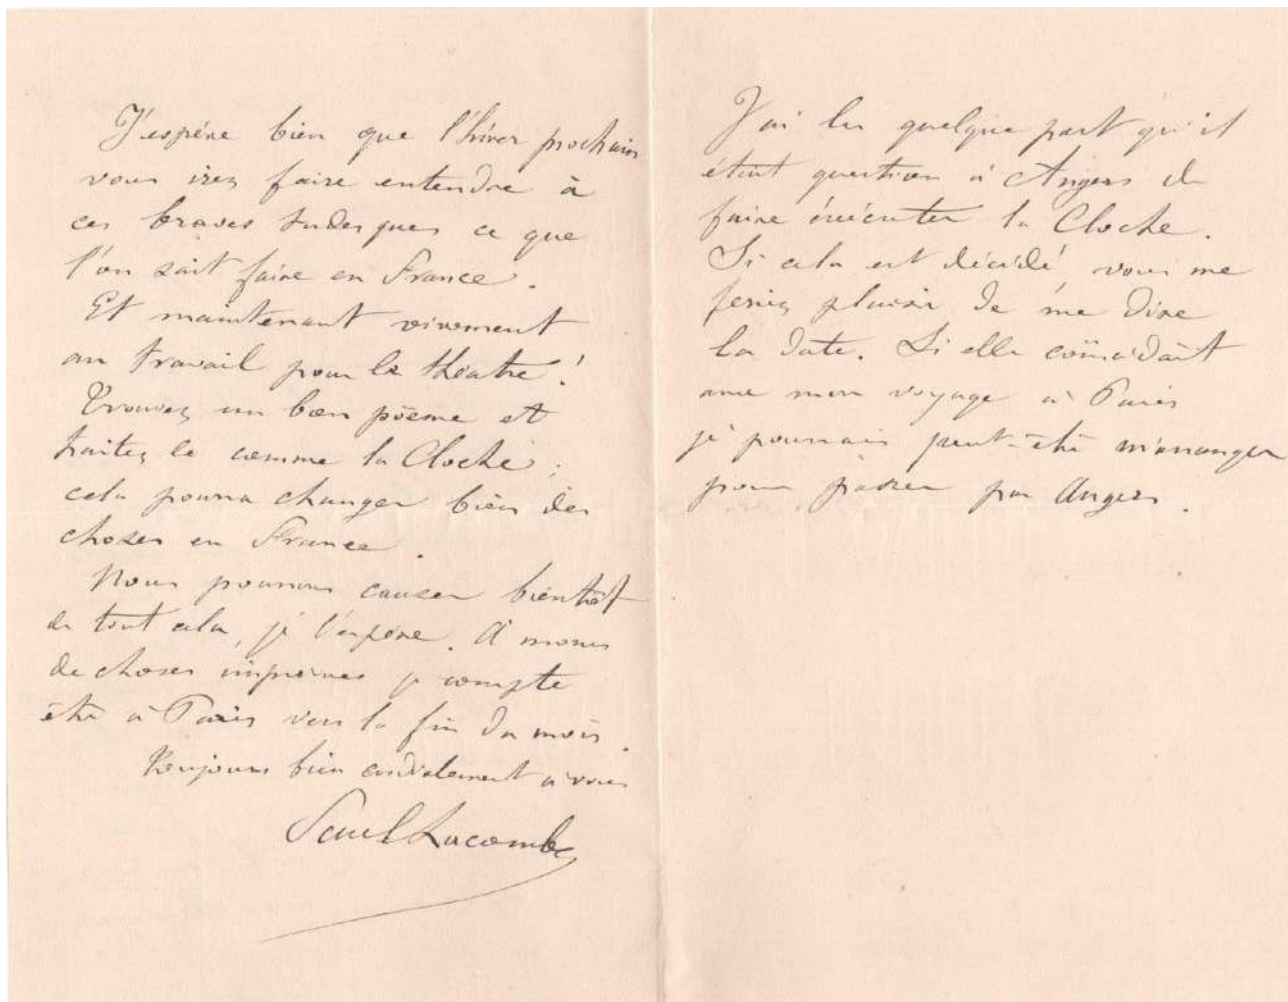 J'espère bien que l'hiver prochain
vous irez faire entendre à
ces braves tudesques ce que
l'on sait faire en France.
Et maintenant vivement
au travail pour le théatre!
Trouvez un bon poëme et
traitez le comme la Cloche;
cela pourra changer bien des
choses en France.
Nous pourrons causer bientôt
de tout cela, je l'espère. A moins
de choses imprévues je compte
être à Paris vers la fin du mois.
Toujours bien cordialement à vous
Paul Lacombe
J'ai lu quelque part qu'il
était question à Angers de
faire exécuter la Cloche.
Si cela est décidé vous me
feriez plaisir de me dire
la date. Si elle coïncidait
avec mon voyage à Paris
je pourrais peut-être m'arranger
pour passer par Angers.